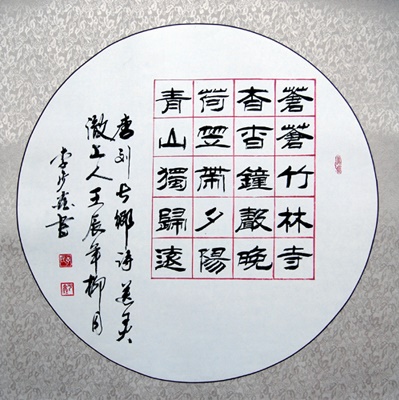 蒼蒼竹林寺
杳杳鐘聲晚
荷笠帶夕陽
青山獨歸遠
唐刘长卿诗送灵
澈上人壬辰年柳月
书